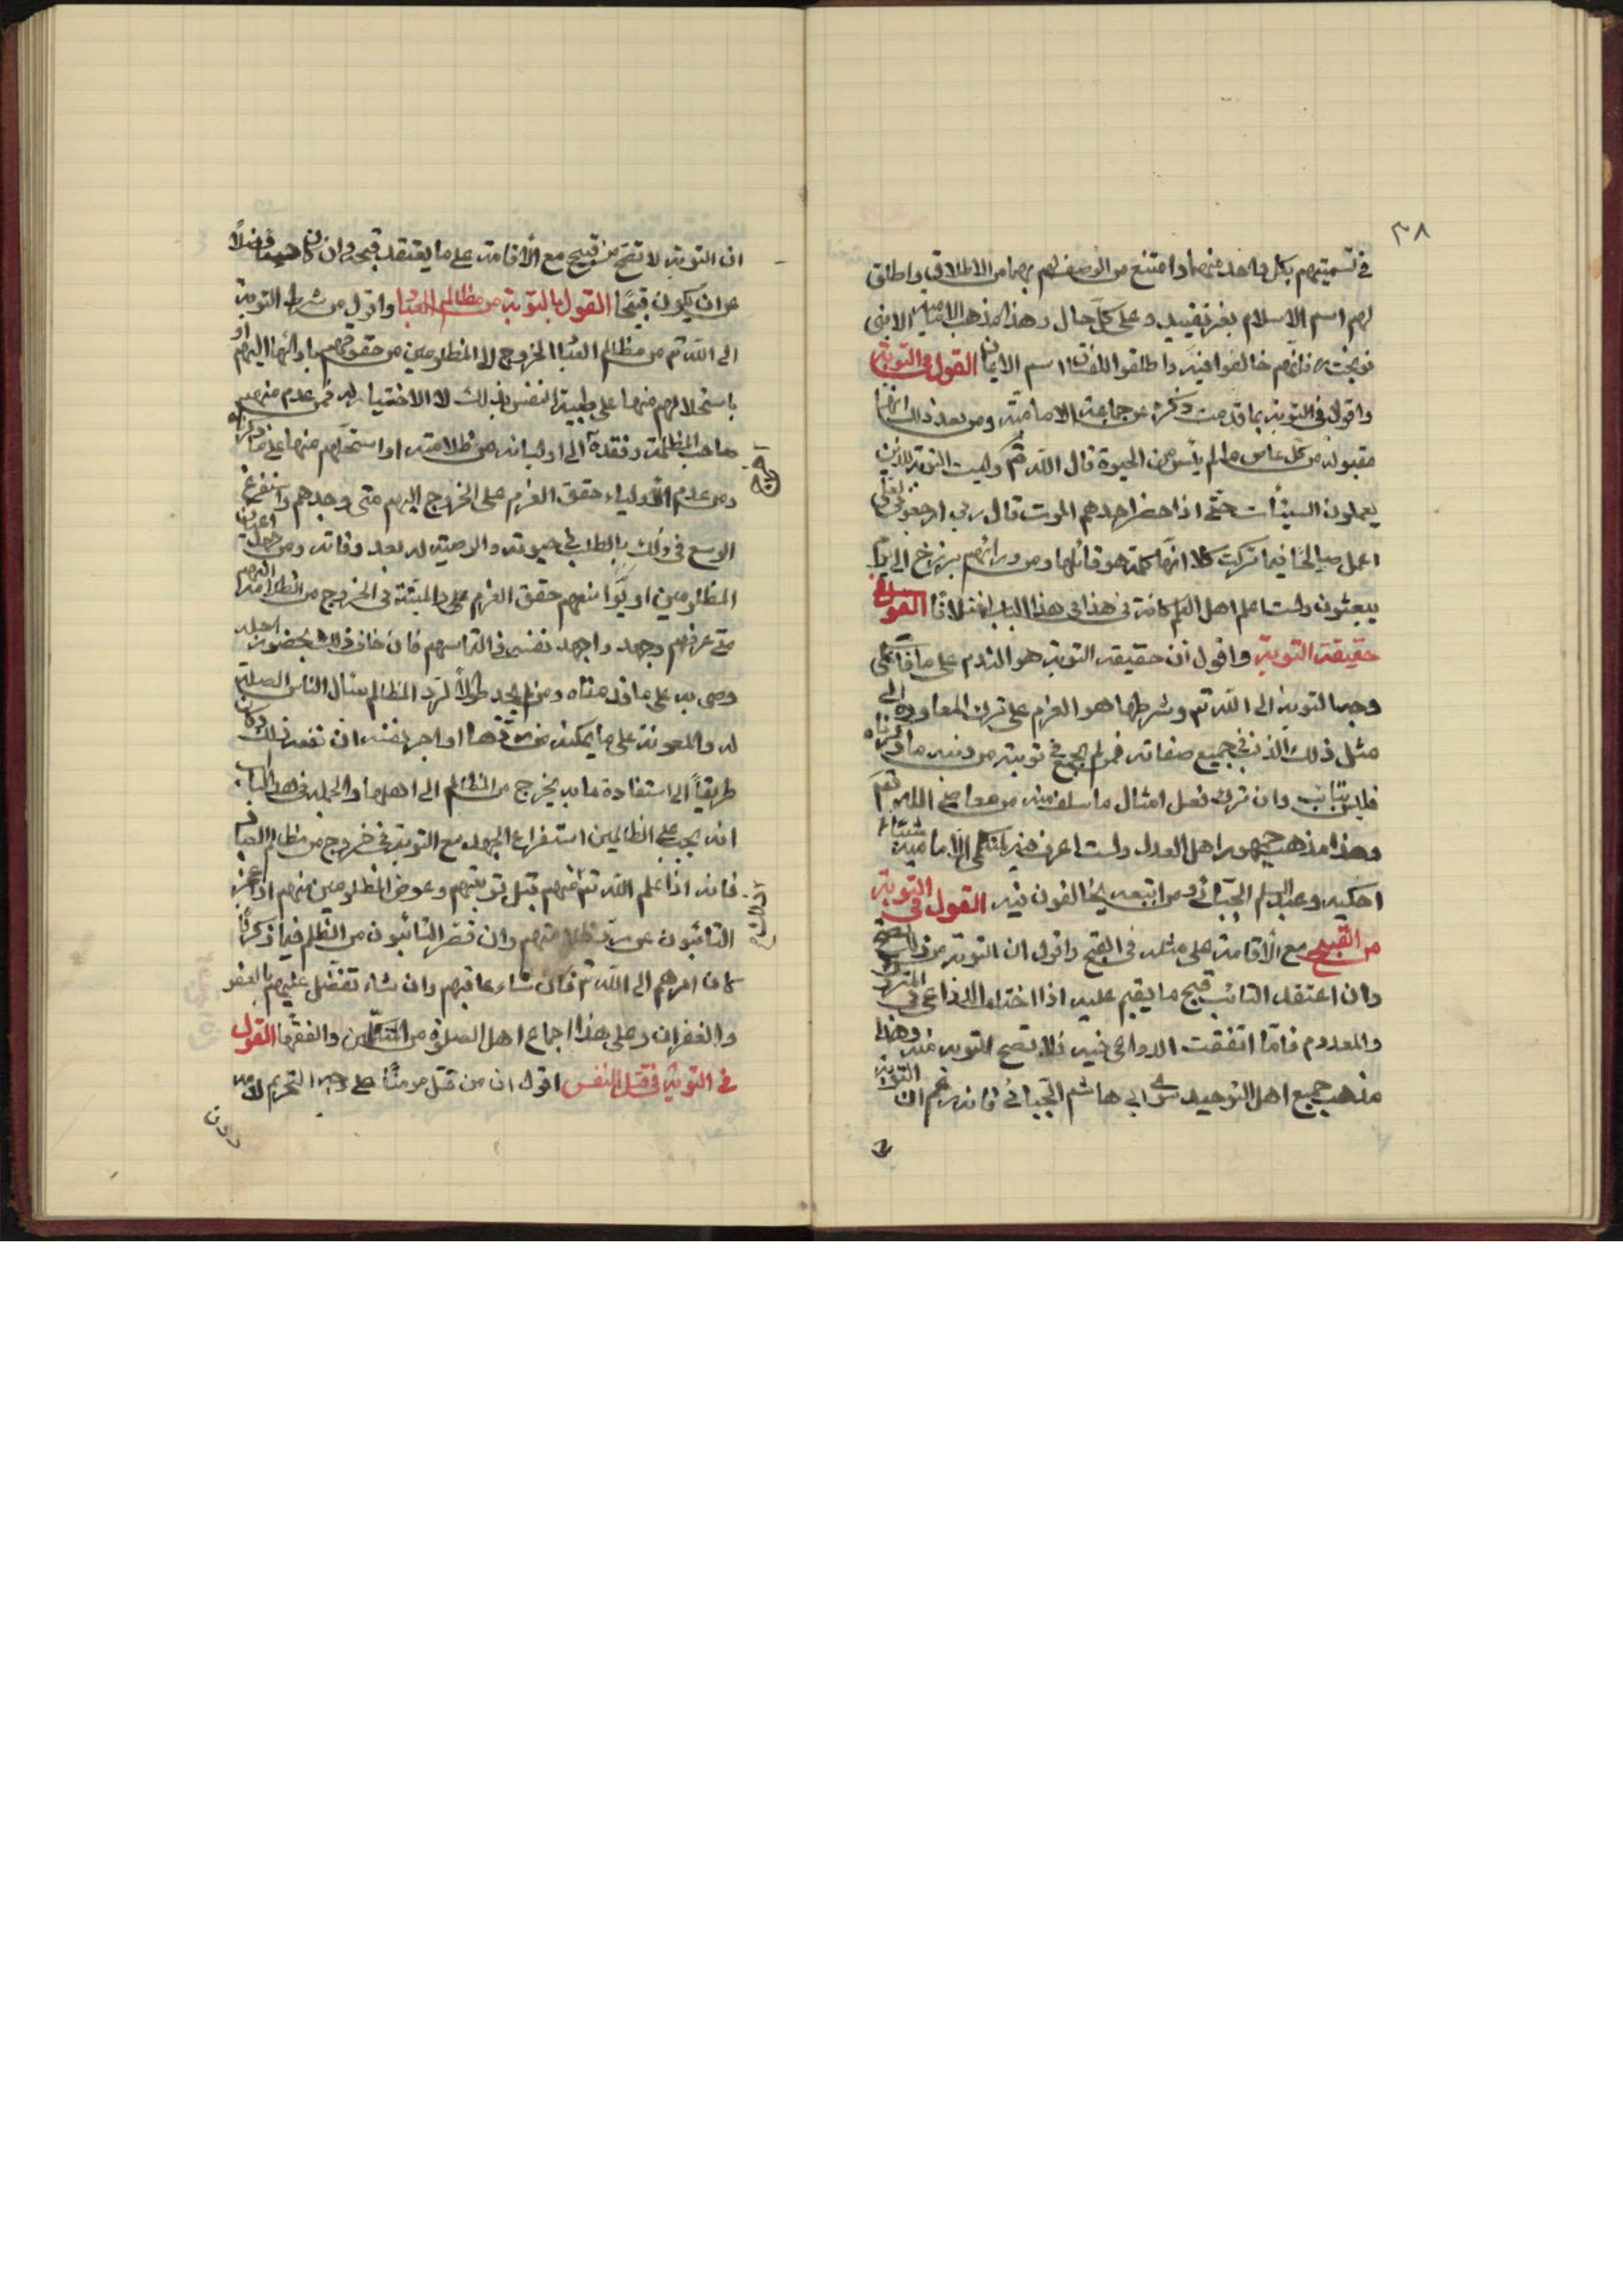 ٣٨
في تسميتهم بكل واحد منهما وامتنع من الوصف لهم بهما من الاطلاق واطلق
لهم اسم الاسلام بغير تقييد وعلى كل حال وهذا مذهب الامامية الا بني
نوبخت ره فانهم خالفوا فيه واطلقوا للفساق اسم الايمان القول في التوبة
واقول في التوبة بما قدمت ذكره عن جماعة الامامية ومن بعد ذلك انها
مقبولة من كل عاص ما لم يئس من الحيوة قال الله تع وليست التوبة للذين
يعملون السيئات حتى اذا حضر احدهم الموت قال رب ارجعون لعلي
اعمل صالحا فيما تركت كلا انها كلمة هو قائلها ومن ورائهم برزخ الى يوم
يبعثون ولست اعلم اهل العلم كافة في هذا في هذا الباب اختلافا القول في
حقيقة التوبة واقول ان حقيقة التوبة هو الندم على ما فات على
وجه التوبة الى الله تع وشرطها هو العزم على ترك المعاودة الى
مثل ذلك الذنب في جميع صفاته فمن لم يجمع في توبته من ذنبه ما ذكرناه
فليس بتائب وان ترك فعل امثال ما سلف منه من معاصي الله تع
وهذا مذهب جمهور اهل العدل ولست اعرف فيه لمتكلمي الامامية شيئا
احكيه وعبد السلم الجبائي ومن اتبعه يخالفون فيه القول في التوبة
من القبيح مع الاقامة على مثله في القبح واقول ان التوبة من ذلك تصح
وان اعتقد التائب قبح ما يقيم عليه اذا اختلف الدواعي في المتروك
والمعدوم فاما اتفقت الدواعي فيه فلا تصح التوبة منه وهذا
مذهب جميع اهل التوحيد سوى ابي هاشم الجبائي فانه زعم ان التوبة
ان التوبة لا تصح من قبيح مع الاقامة على ما يعتقد قبحه وان كان حسنا فضلا
عن ان يكون قبيحا القول بالتوبة من مظالم العباد واقول من شرط التوبة
الى الله تع من مظالم العباد الخروج الى المظلومين من حقوقهم بادائها اليهم او
باستحلالهم منها على طيبة النفس بذلك والاختيار له فمن عدم منهم
صاحب المظلمة وفقده الى اوليائه من ظلامته او استحلهم منها على ما ذكرناه
ومن عدم الاولياء حقق العزم على الخروج اليهم متى وجدهم واستفرغ
الوسع في ذلك بالطلب في حيوته والوصية له بعد وفاته ومن جهل اعيان
المظلومين او مواضعهم حقق العزم على والمبتتة في الخروج من الظلامة اليهم
متى عرفهم وجهد واجهد نفسه في التماسهم فان خاف ذلك بحضور اجله
وصى به على ما قدمناه ومن لم يجد طولا لرد المظالم سئال الناس الصلة
له والمعونة على ما يمكنه من ردها او اجر نفسه ان نفعه ذلك وكان
طريقا الى استفادة ما به يخرج من المظالم الى اهلها والجملة في هذا الباب
انه يجب على الظالمين استفراغ الجهد مع التوبة في خروج من مظالم العباد
فانه اذا علم الله تع منهم قبل توبتهم وعوض المظلومين منهم اذا عجز
التائبون عن رد ظلامتهم وان قصر التائبون من الظلم فيما ذكرناه
كان امرهم الى الله تع فان شاء عاقبهم وان شاء تفضل عليهم بالعفو
والغفران وعلى هذا اجماع اهل الصلوة من المتكلمين والفقهاء القول
في التوبة في قتل النفس اقول ان من قتل مؤمنا على وجه التحريم لدمه
دون